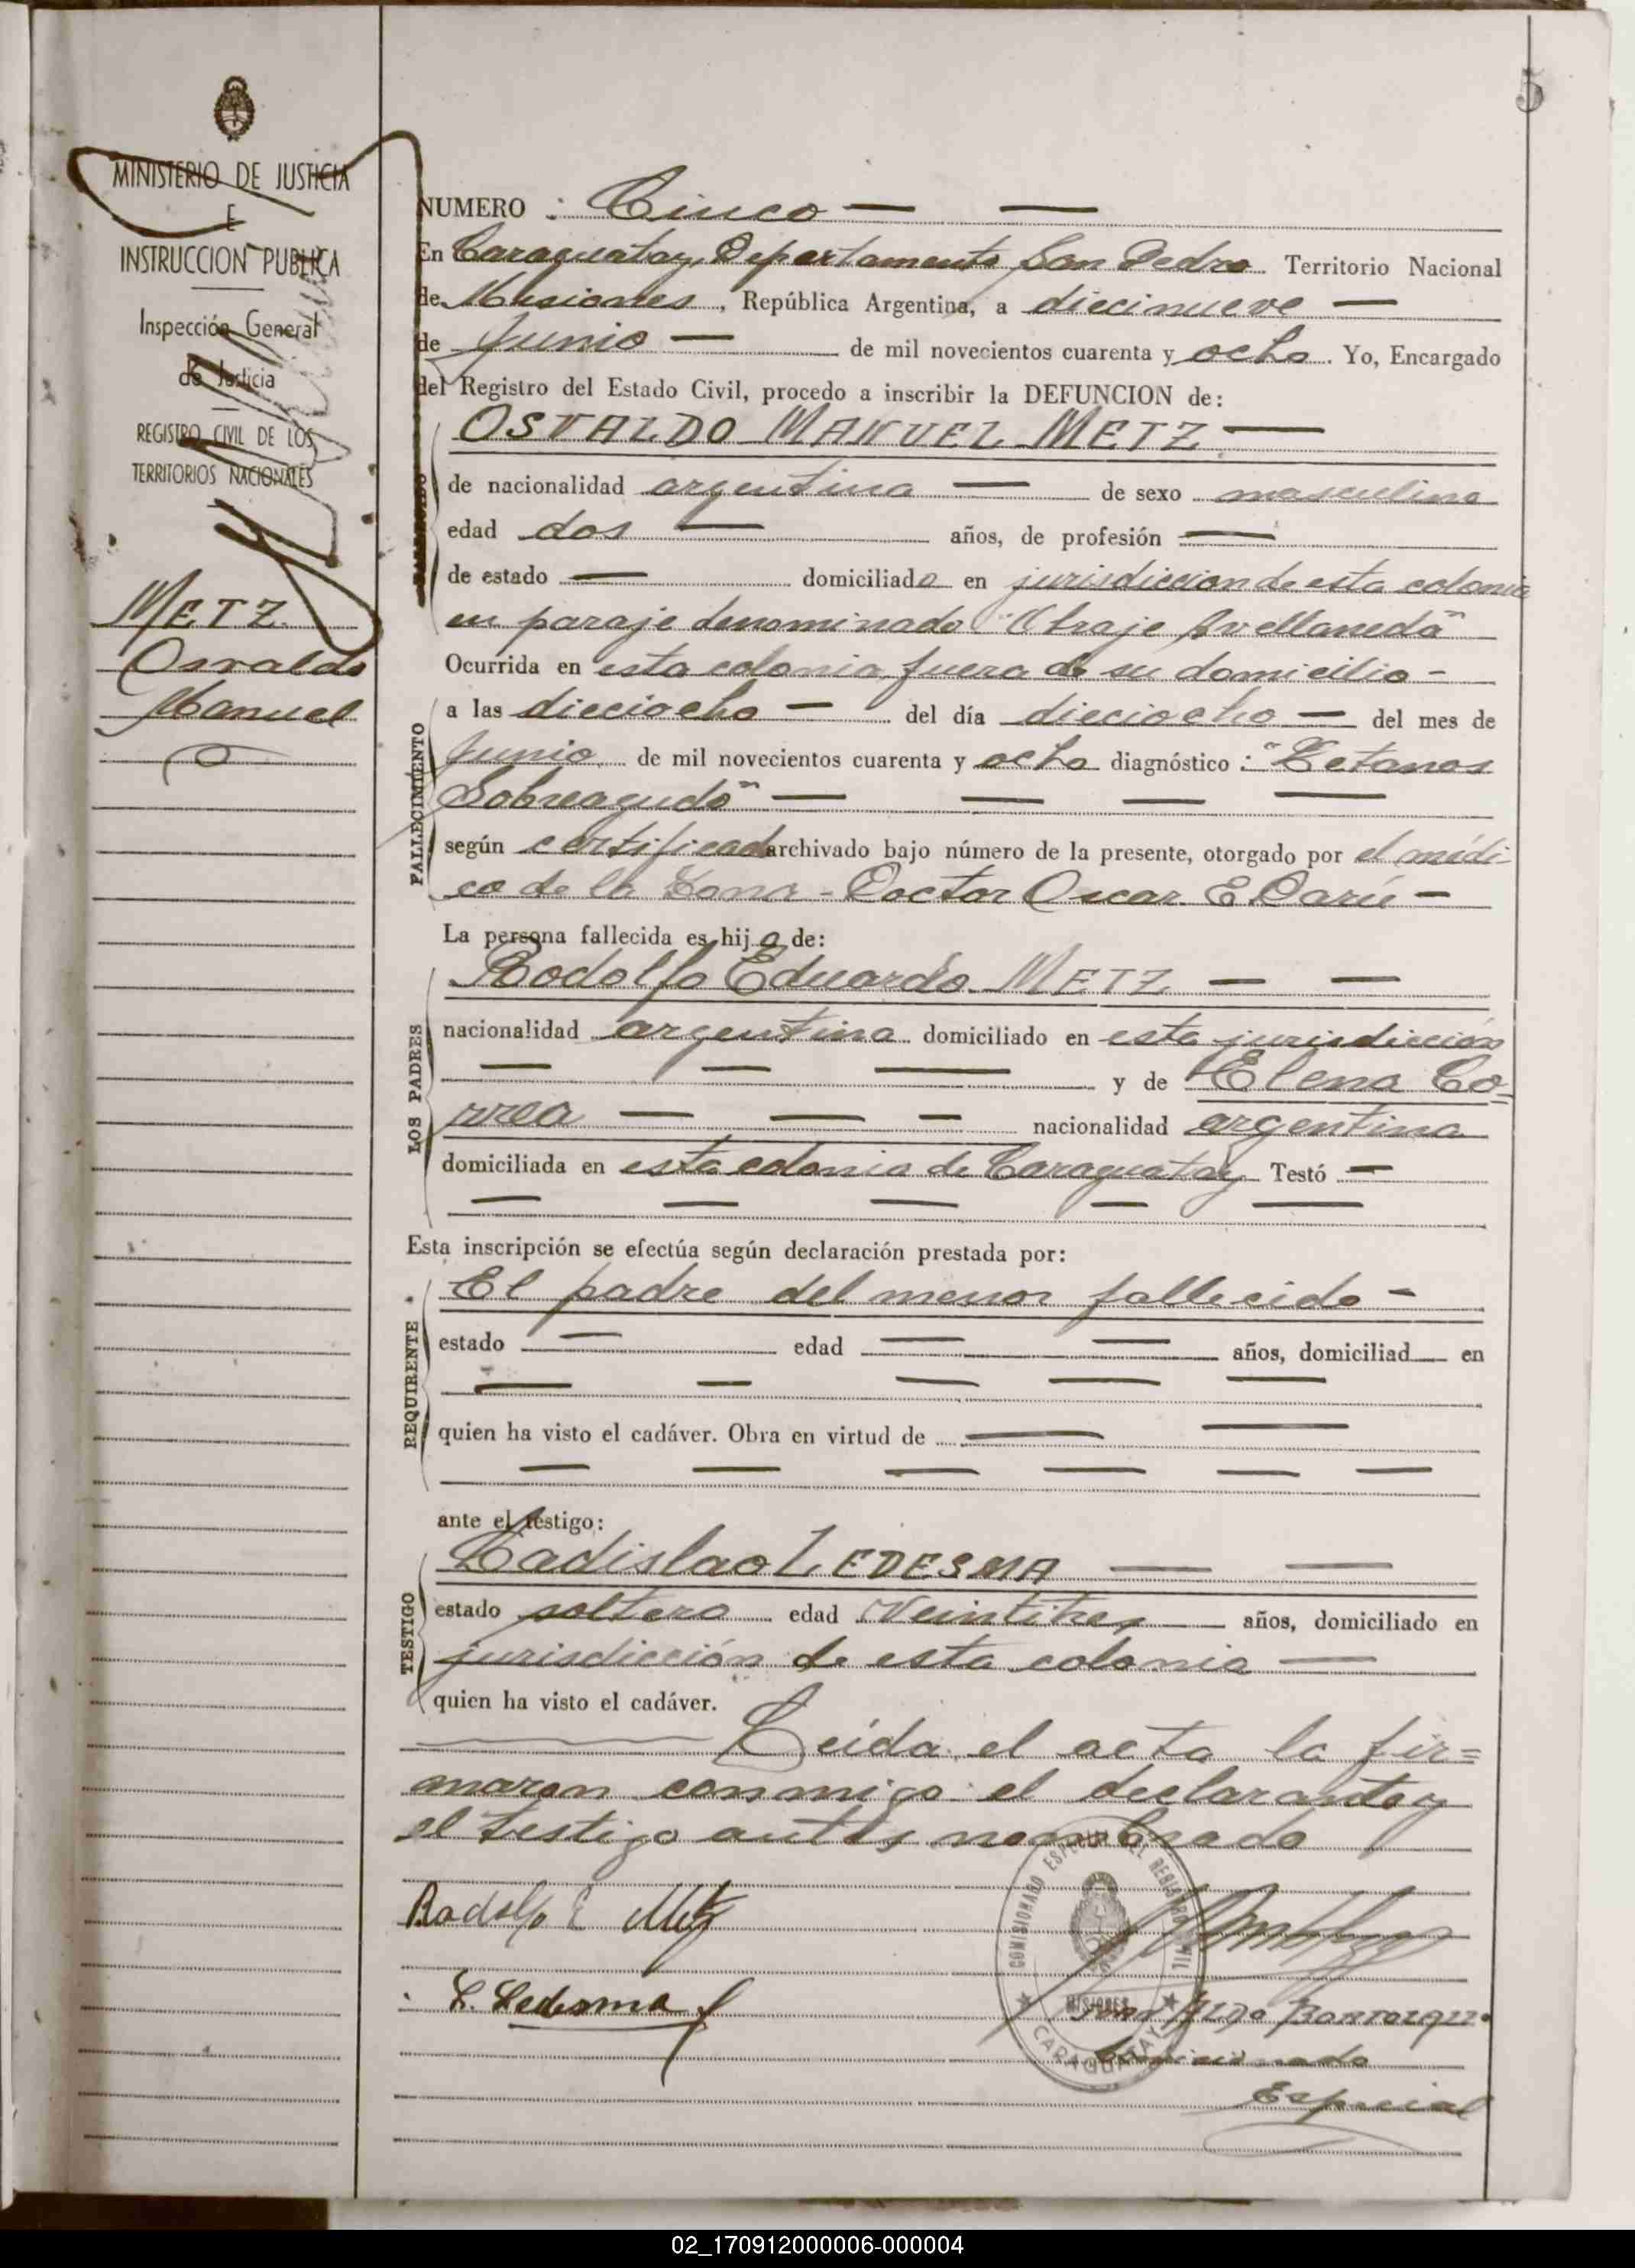 5
MINISTERIO DE JUSTICIA
E
INSTRUCCION PUBLICA
Inspección General
de Justicia
REGISTRO CIVIL DE LOS
TERRITORIOS NACIONALES
METZ
Osvaldo
Manuel
NUMERO : Cinco
En Caraguatay, Departamento San Pedro Territorio Nacional
de Misiones, República Argentina, a diecinueve
de Junio de mil novecientos cuarenta y ocho. Yo, Encargado
del Registro del Estado Civil, procedo a inscribir la DEFUNCION de:
OSVALDO MANUEL METZ
de nacionalidad argentina de sexo masculino
edad dos años, de profesión
de estado domiciliado en jurisdiccion de esta colonia
en paraje denominado "Obraje Avellaneda"
Ocurrida en esta colonia, fuera de su domicilio
FALLECIMIENTO
a las dieciocho del día dieciocho del mes de
Junio de mil novecientos cuarenta y ocho diagnóstico : "Tetanos
Sobreagudo"
según certificado archivado bajo número de la presente, otorgado por el médi-
co de la Zona - Doctor Oscar E.
La persona fallecida es hijo de:
LOS PADRES
Rodolfo Eduardo METZ
nacionalidad argentina domiciliado en esta jurisdicción
y de Elena Co=
rrea nacionalidad argentina
domiciliada en esta colonia de Caraguatay Testó
Esta inscripción se efectúa según declaración prestada por:
REQUIRENTE
El padre del menor fallecido
estado edad años, domiciliad en
quien ha visto el cadáver. Obra en virtud de
ante el testigo:
TESTIGO
Ladislao LEDESMA
estado soltero edad Veintitres años, domiciliado en
jurisdicción de esta colonia
quien ha visto el cadáver.
Leída el acta la fir=
maron conmigo el declarante y
el testigo antes nombrado
Rodolfo E Metz
L. Ledesma
COMISIONADO ESPECIAL DEL REGISTRO CIVIL
MISIONES
CARAGUATAY
Comisionado
Especial
02_170912000006-000004